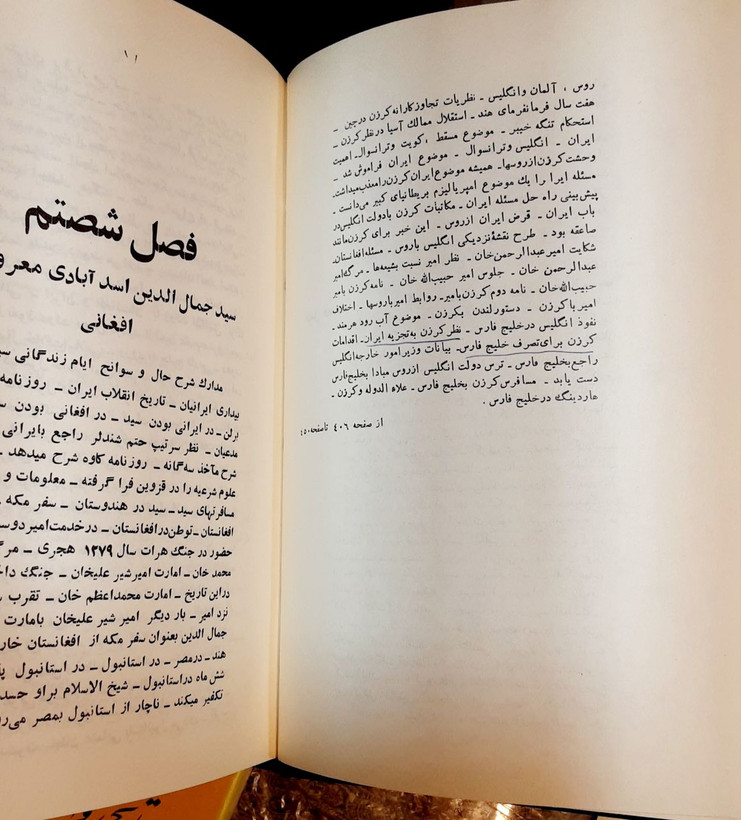 روس ، آلمان وانگلیس ـ نظریات تجاوزکارانه کرزن درچین ـ
هفت سال فرمانفرمای هند ـ استقلال ممالک آسیا درنظرکرزن ـ
استحکام تنگه خیبر ـ موضوع مسقط ،کویت وترانسوال ـ اهمیت
ایران ـ انگلیس وترانسوال ـ موضوع ایران فراموش شد ـ
وحشت کرزن ازروسها ـ همیشه موضوع ایران کرزن را معذب میداشت
مسئله ایرا را یك موضوع امپریالیزم بریطانیای کبیر می دانست ـ
پیش بینی راه حل مسئله ایران ـ مکاتبات کرزن بادولت انگلیس در
باب ایران ـ قرض ایران ازروس ـ این خبر برای کرزن مانند
صاعقه بود ـ طرح نقشهٔ نزدیکی انگلیس باروس ـ مسئله افغانستان
شکایت امیرعبدالرحمن خان ـ نظر امیر نسبت بشیعه‌ها ـ مرگ امیر
عبدالرحمن خان ـ جلوس امیر حبیب الله خان ـ نامه کرزن بامیر
حبیب الله خان ـ نامه دوم کرزن بامیر ـ روابط امیر باروسها ـ اختلاف
امیر با کرزن ـ دستور لندن بکرزن ـ موضوع آب رود هرمند ـ
نفوذ انگلیس درخلیج فارس ـ نظر کرزن به تجزیه ایران ـ اقدامات
کرزن برای تصرف خلیج فارس ـ بیانات وزیر امور خارجه انگلیس
راجع بخلیج فارس ـ ترس دولت انگلیس ازروس مبادا بخلیج فارس
دست یابد ـ مسافرت کرزن بخلیج فارس ـ علاء الدوله و کرزن ـ
هاردینگ درخلیج فارس .
از صفحه ٤٠٦ تا صفحه
١١
فصل شصتم
سید جمال الدین اسد آبادی
افغانی
مدارك شرح حال و سوانح ایام زندگانی
بیداری ایرانیان ـ تاریخ انقلاب ایران ـ روزنامه
برلن ـ در ایرانی بودن سید ـ در افغانی بودن
مدعیان ـ نظر سرتیپ حتم شندلر راجع بایرانی
شرح مآخذ سه گانه ـ روزنامه کاوه شرح میدهد ـ
علوم شرعیه را در قزوین فرا گرفته ـ معلومات و
مسافرتهای سید ـ سید در هندوستان ـ سفر مکه
افغانستان ـ توطن در افغانستان ـ در خدمت امیر
حضور در جنگ هرات سال ۱۲۷۹ هجری ـ
محمد خان ـ امارت امیر شیر علیخان ـ جنگ
دراین تاریخ ـ امارت محمد اعظم خان ـ تقرب
نزد امیر ـ بار دیگر امیر شیر علیخان بامارت
جمال الدین بعنوان سفر مکه از افغانستان
هند ـ درمصر ـ در استانبول ـ در استانبول
شش ماه دراستانبول ـ شیخ الاسلام براو
تکفیر میکند ـ ناچار از استانبول بمصر